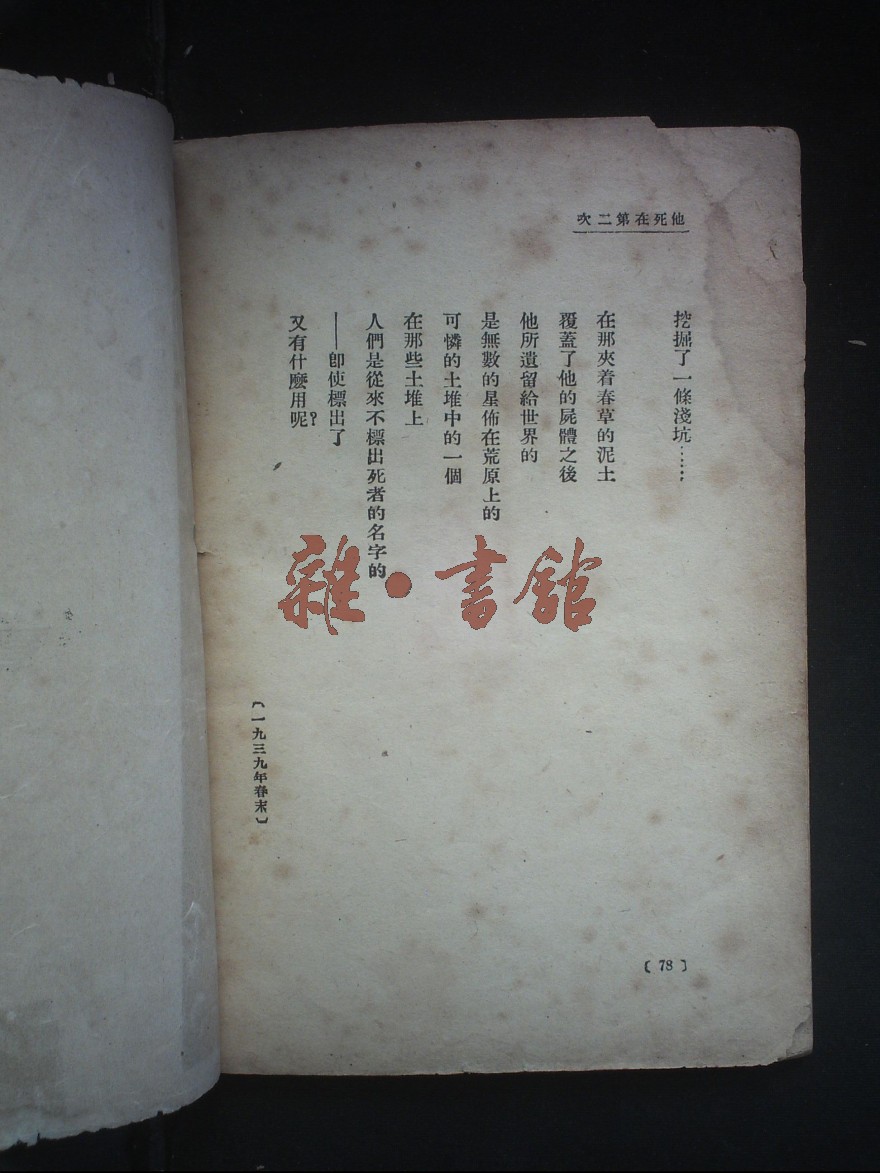 他死在第二次
挖掘了一條淺坑……
在那夾着春草的泥土
覆蓋了他的屍體之後
他所遺留給世界的
是無數的星佈在荒原上的
可憐的土堆中的一個
在那些土堆上
人們是從來不標出死者的名字的
——卽使標出了
又有什麽用呢？
〔一九三九年春末〕
〔78〕
雜·書舘